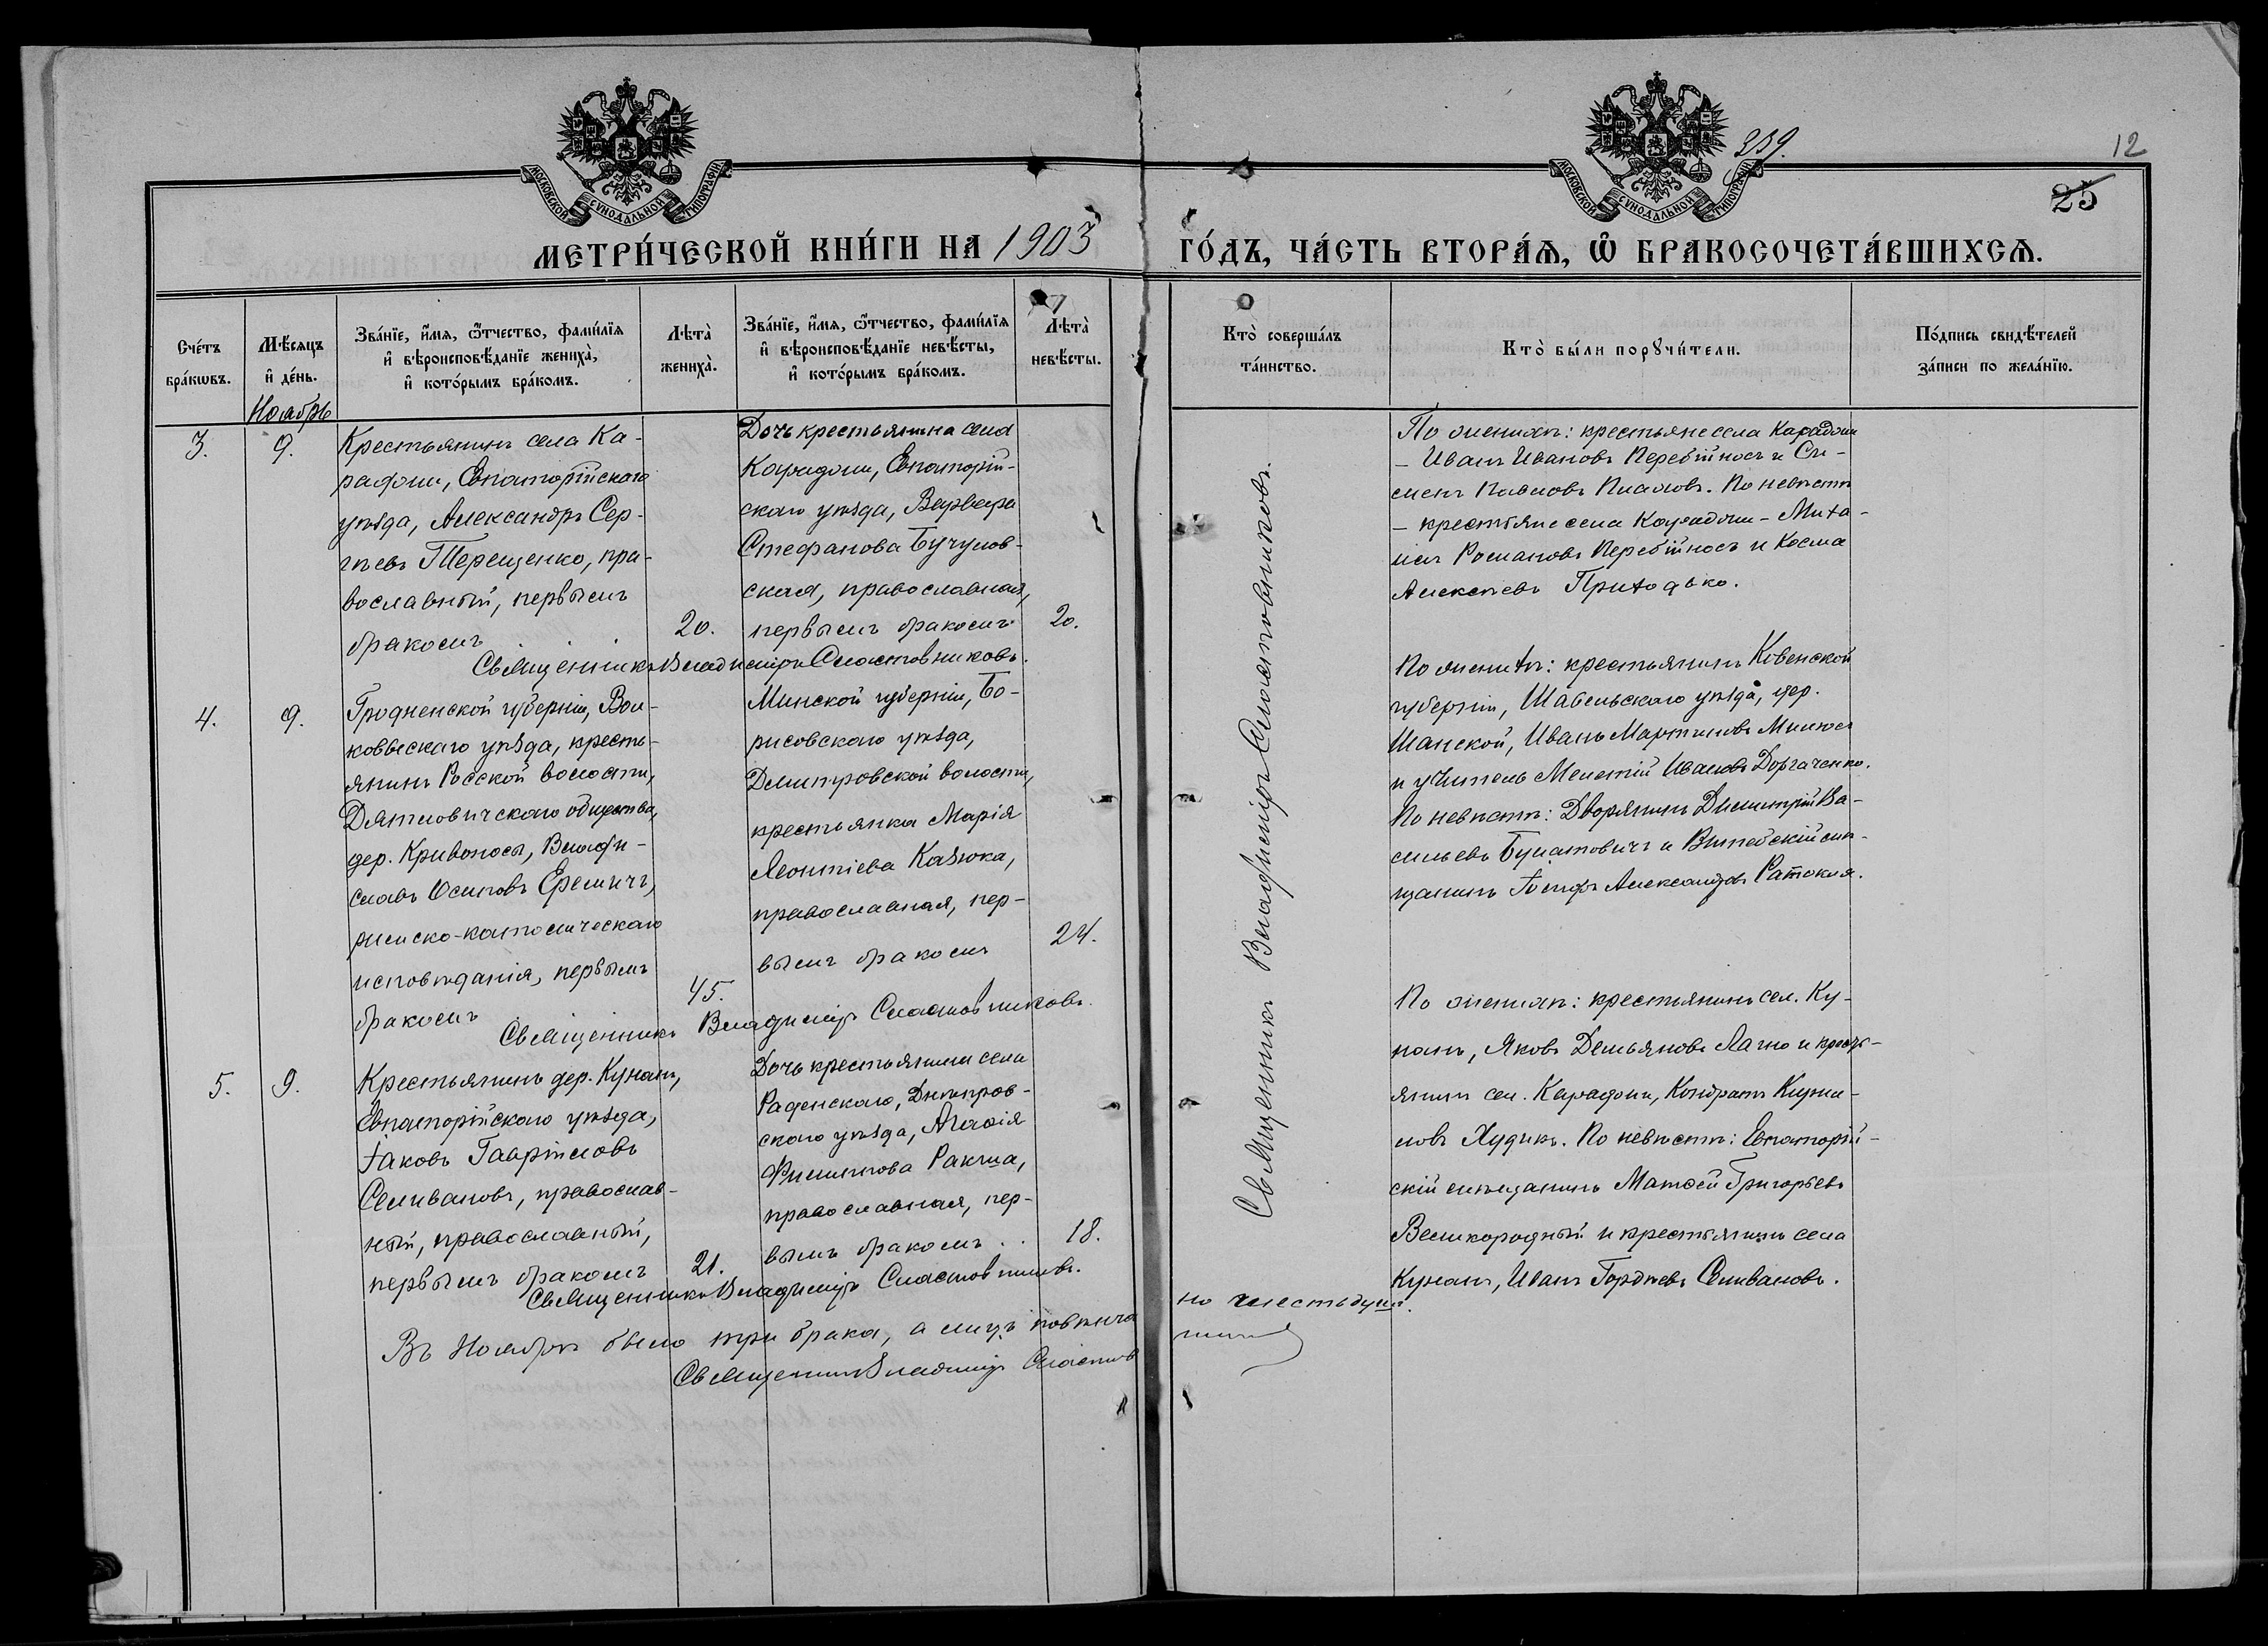 МОСКОВСКОЙ СУНОДАЛЬНОЙ ТИПОГРАФІИ
МОСКОВСКОЙ СУНОДАЛЬНОЙ ТИПОГРАФІИ
339.
12
25
МЕТРИ́ЧЕСКОЙ КНИ́ГИ НА 1903 ГО́ДЪ, ЧА́СТЬ ВТОРА́Ѧ, Ѡ҆ БРАКОСОЧЕТА́ВШИХСѦ.
Сче́тъ бра́кѡвъ.
Мѣ́сяцъ и҆ де́нь.
Зва́нїе, и҆́мя, ѻ҆́тчество, фами́лїя и҆ вѣроисповѣ́данїе жениха̀, и҆ кото́рымъ бра́комъ.
Лѣта̀ жениха̀.
Зва́нїе, и҆́мя, ѻ҆́тчество, фами́лїя и҆ вѣроисповѣ́данїе невѣ́сты, и҆ кото́рымъ бра́комъ.
Лѣта̀ невѣ́сты.
Кто̀ соверша́лъ та́инство.
Кто̀ бы́ли порꙋчи́тели.
По́дпись свидѣ́телей за́писи по жела́нїю.
Ноябрь
3.
9.
Крестьянинъ села Ка-
раджи, Евпаторійскаго
уѣзда, Александръ Сер-
гѣевъ Терещенко, пра-
вославный, первымъ
бракомъ
20.
Дочь крестьянина села
Караджи, Евпаторій-
скаго уѣзда, Варвара
Стефанова Бучунов-
ская, православная,
первымъ бракомъ
20.
Священникъ Владиміръ Сластовниковъ.
По женихѣ: крестьяне села Караджи
– Иванъ Ивановъ Перебійносъ и Си-
менъ Павловъ Пиловъ. По невѣстѣ
– крестьяне села Караджи – Миха-
илъ Романовъ Перебійносъ и Косма
Алексѣевъ Приходько.
4.
9.
Гродненской губерніи, Вол-
ковыскаго уѣзда, кресть-
янинъ Росской волости,
Дятловичскаго общества,
дер. Кривоносы, Влади-
славъ Осиповъ Еремичъ,
римско-католическаго
исповѣданія, первымъ
бракомъ
45.
Минской губерніи, Бо-
рисовскаго уѣзда,
Дмитровской волости,
крестьянка Марія
Леонтіева Казюка,
православная, пер-
вымъ бракомъ
24.
Священникъ Владиміръ Сластовниковъ.
По женихѣ: крестьянинъ Ковенской
губерніи, Шавельскаго уѣзда, дер.
Шанской, Иванъ Мартиновъ Милюсъ
и учитель Мелетій Ивановъ Доргаченко.
По невѣстѣ: Дворянинъ Димитрій Ва-
сильевъ Булатовичъ и Витебскій мѣ-
щанинъ Іосифъ Александровъ Ратокля.
5.
9.
Крестьянинъ дер. Кунанъ,
Евпаторійскаго уѣзда,
Іаковъ Гавріиловъ
Селивановъ, православ-
ный, православный,
первымъ бракомъ
21.
Дочь крестьянина села
Раденскаго, Днѣпров-
скаго уѣзда, Агафія
Филиппова Ракша,
православная, пер-
вымъ бракомъ ..
18.
Священникъ Владиміръ Сластовниковъ.
По женихѣ: крестьянинъ сел. Ку-
нанъ, Яковъ Демьяновъ Лагно и кресть-
янинъ сел. Караджи, Кондратъ Кирил-
ловъ Худикъ. По невѣстѣ: Евпаторій-
скій мѣщанинъ Матѳей Григорьевъ
Великородный и крестьянинъ села
Кунанъ, Иванъ Гордѣевъ Селивановъ.
Священникъ Владиміръ Сластовниковъ.
Въ Ноябрѣ было три брака, а лицъ повѣнчано шесть душъ.
Священникъ Владиміръ Сластовниковъ